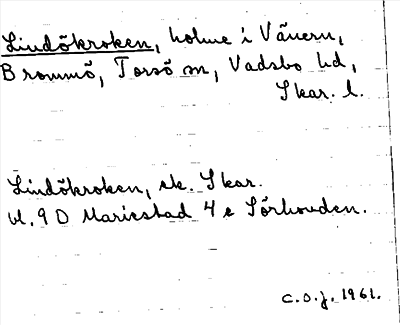 Lindökroken, holme i Vänern,
Brommö, Torsö sn, Vadsbo hd,
Skar. l.
Lindökroken, ek. Skar.
bl. 9 D Mariestad 4 e Sörhouden.
C.O.J. 1961.